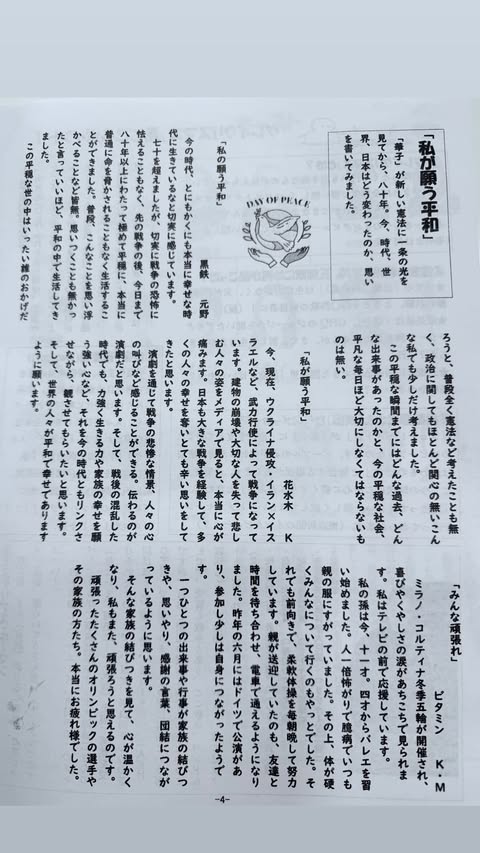 「私が願う平和」
「華子」が新しい憲法に一条の光を
見てから、八十年。今、時代、世
界、日本はどう変わったのか、思い
を書いてみました。
DAY OF PEACE
「私の願う平和」
黒鉄　元野
今の時代、とにかくにも本当に幸せな時
代に生きているなと切実に感じています。
七十を超えましたが、切実に戦争の恐怖に
怯えることもなく、先の戦争の後、今日まで
八十年以上にわたって極めて平穏に、本当に
普通に命を脅かされることもなく生活するこ
とができました。普段、こんなことを思い浮
かべることなど皆無。思いつくことも無かっ
たと言っていいほど、平和の中で生活してき
ました。
この平穏な世の中はいったい誰のおかげだ
ろうと、普段全く憲法など考えたことも無
く、政治に関してもほとんど関心の無いこん
な私でも少しだけ考えました。
この平穏な瞬間までにはどんな過去、どん
な出来事があったのかと、今の平穏な社会、
平凡な毎日ほど大切にしなくてはならないも
のは無い。
「私が願う平和」
花水木　K
今、現在、ウクライナ侵攻・イラン×イス
ラエルなど、武力行使によって戦争になって
います。建物の崩壊や大切な人を失って悲し
む人々の姿をメディアで見ると、本当に心が
痛みます。日本も大きな戦争を経験して、多
くの人々の幸せを奪いとても辛い思いをして
きたと思います。
演劇を通じて戦争の悲惨な情景、人々の心
の叫びなど感じることができる。伝わるのが
演劇だと思います。そして、戦後の混乱した
時代でも、力強く生きる力や家族の幸せを願
う強い心など、それを今の時代ともリンクさ
せながら、観させてもらいたいと思います。
そして、世界の人々が平和で幸せであります
ように願います。
「みんな頑張れ」
ビタミン　K・M
ミラノ・コルティナ冬季五輪が開催され、
喜びやくやしさの涙があちこちで見られま
す。私はテレビの前で応援しています。
私の孫は今、十一才。四才からバレエを習
い始めました。人一倍怖がりで臆病でいつも
親の服にすがっていました。その上、体が硬
くみんなについて行くのもやっとでした。そ
れでも前向きで、柔軟体操を毎朝晩して努力
しています。親が送迎していたのも、友達と
時間を待ち合わせ、電車で通えるようになり
ました。昨年の六月にはドイツで公演があ
り、参加し少しは自身につながったようで
す。
一つひとつの出来事や行事が家族の結びつ
きや、思いやり、感謝の言葉、団結につなが
っているように思います。
そんな家族の結びつきを見て、心が温かく
なり、私もまた、頑張ろうと思えるのです。
頑張ったたくさんのオリンピックの選手や
その家族の方たち。本当にお疲れ様でした。
-4-